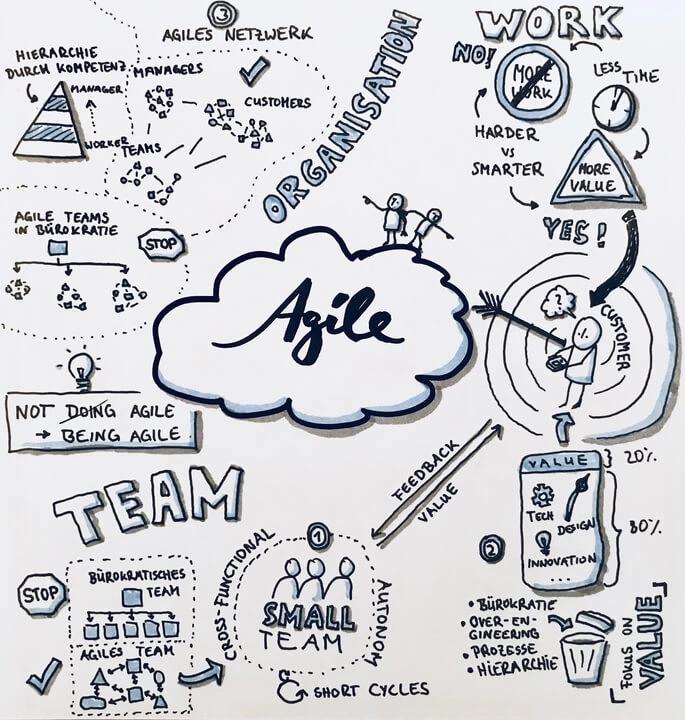 3
AGILES NETZWERK
HIERARCHIE
DURCH KOMPETENZ
MANAGER
WORKER
MANAGERS
CUSTOMERS
TEAMS
ORGANISATION
AGILE TEAMS
IN BÜROKRATIE
STOP
NOT DOING AGILE
→ BEING AGILE
Agile
WORK
NO!
MORE
WORK
LESS TIME
HARDER
VS
SMARTER
MORE
VALUE
YES!
?
CUSTOMER
FEEDBACK
VALUE
TEAM
STOP
BÜROKRATISCHES
TEAM
AGILES TEAM
1
CROSS-FUNCTIONAL
AUTONOM
SMALL
TEAM
SHORT CYCLES
2
VALUE
20%
TECH
DESIGN
INNOVATION
...
80%
• BÜROKRATIE
• OVER-EN-
GINEERING
• PROZESSE
• HIERARCHIE
FOKUS ON
VALUE